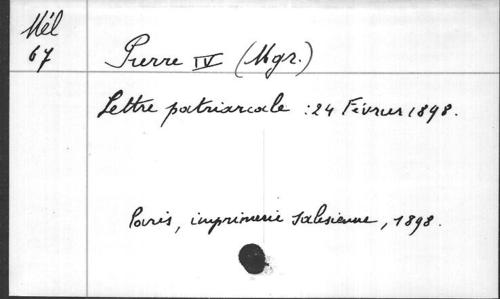 Mél
67
Pierre IV (Mgr.)
Lettre patriarcale : 24 Février 1898.
Paris, imprimerie salésienne, 1898.